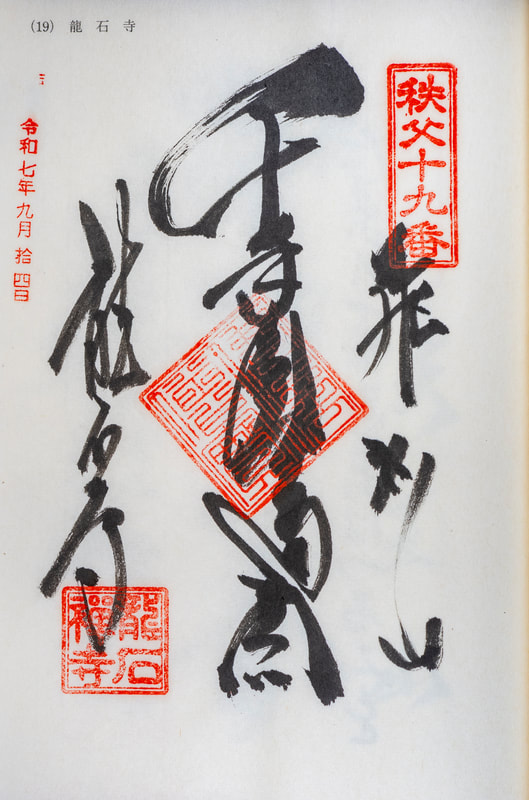 (19) 龍石寺
秩父十九番
飛渕山
千手
龍石寺
龍石
禪寺
令和七年九月拾四日